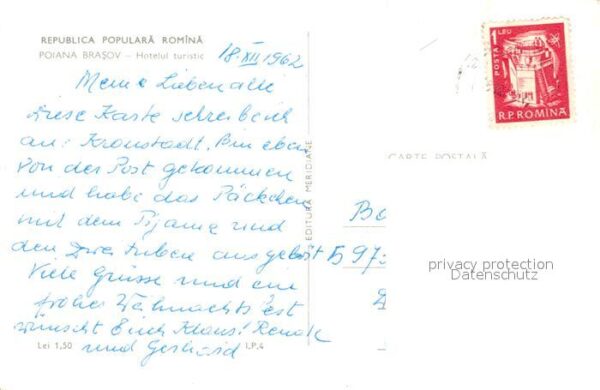 REPUBLICA POPULARĂ ROMÎNĂ
POIANA BRAȘOV – Hotelul turistic
18 XII 1962
Meine Lieben alle
diese Karte schreibe ich
an: Kronstadt. Bin eben
von der Post gekommen
und habe das Päckchen
mit dem Pijama und
den zwei Tuben ausgelöst
Viele Grüsse und ein
frohes Weihnachtsfest
wünscht Euch Klaus! Renate
und Gerhard
Lei 1,50
I.P.4
EDITURA MERIDIANE
1 LEU
POSTA
R.P.ROMINA
CARTE POSTALĂ
Bo
597
privacy protection
Datenschutz